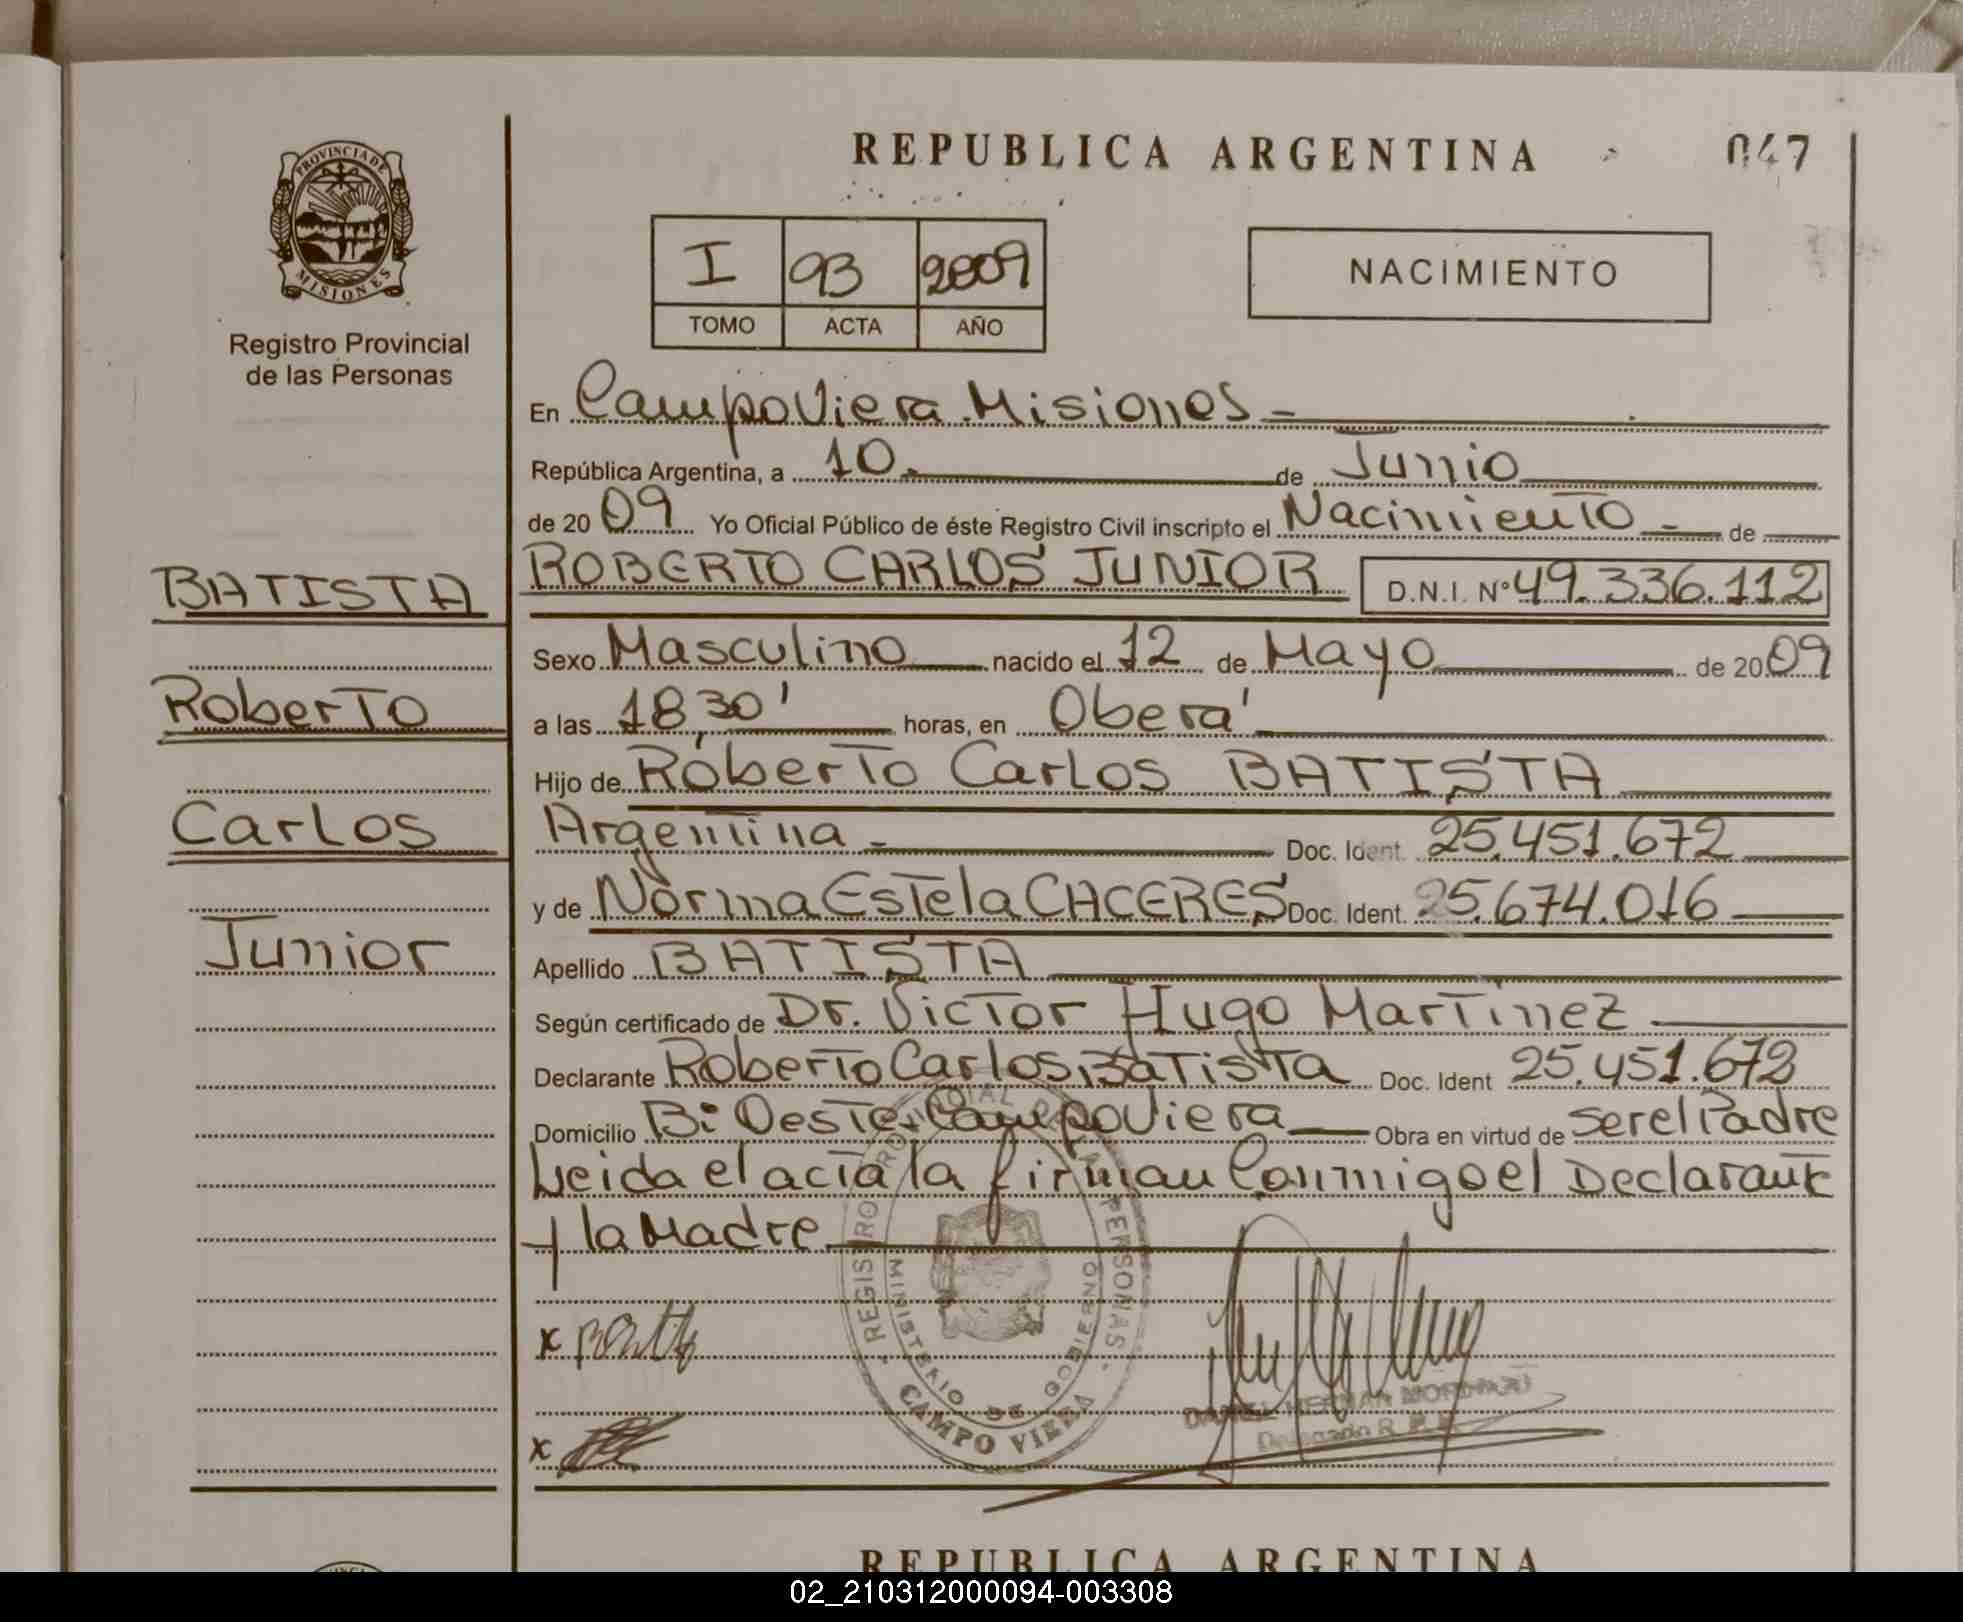 REPUBLICA ARGENTINA
047
PROVINCIA DE
MISIONES
Registro Provincial
de las Personas
I 93 2009
TOMO ACTA AÑO
NACIMIENTO
BATISTA
Roberto
Carlos
Junior
En Campo Viera Misiones
República Argentina, a 10 de Junio
de 2009 Yo Oficial Público de éste Registro Civil inscripto el Nacimiento de
ROBERTO CARLOS JUNIOR D.N.I. Nº 49.336.112
Sexo Masculino nacido el 12 de Mayo de 2009
a las 18 30' horas, en Oberá
Hijo de Roberto Carlos BATISTA
Argentina Doc. Ident. 25.451.672
y de Norma Estela CACERES Doc. Ident. 25.674.016
Apellido BATISTA
Según certificado de Dr. Victor Hugo Martinez
Declarante Roberto Carlos Batista Doc. Ident 25.451.672
Domicilio Bº Oeste. Campo Viera Obra en virtud de ser el Padre
Leida el acta la firman Conmigo el Declarante
y la Madre
x
x
REGISTRO PROVINCIAL DE LAS PERSONAS
MINISTERIO DE GOBIERNO
CAMPO VIERA
DANIEL HERNAN
REPUBLICA ARGENTINA
02_210312000094-003308